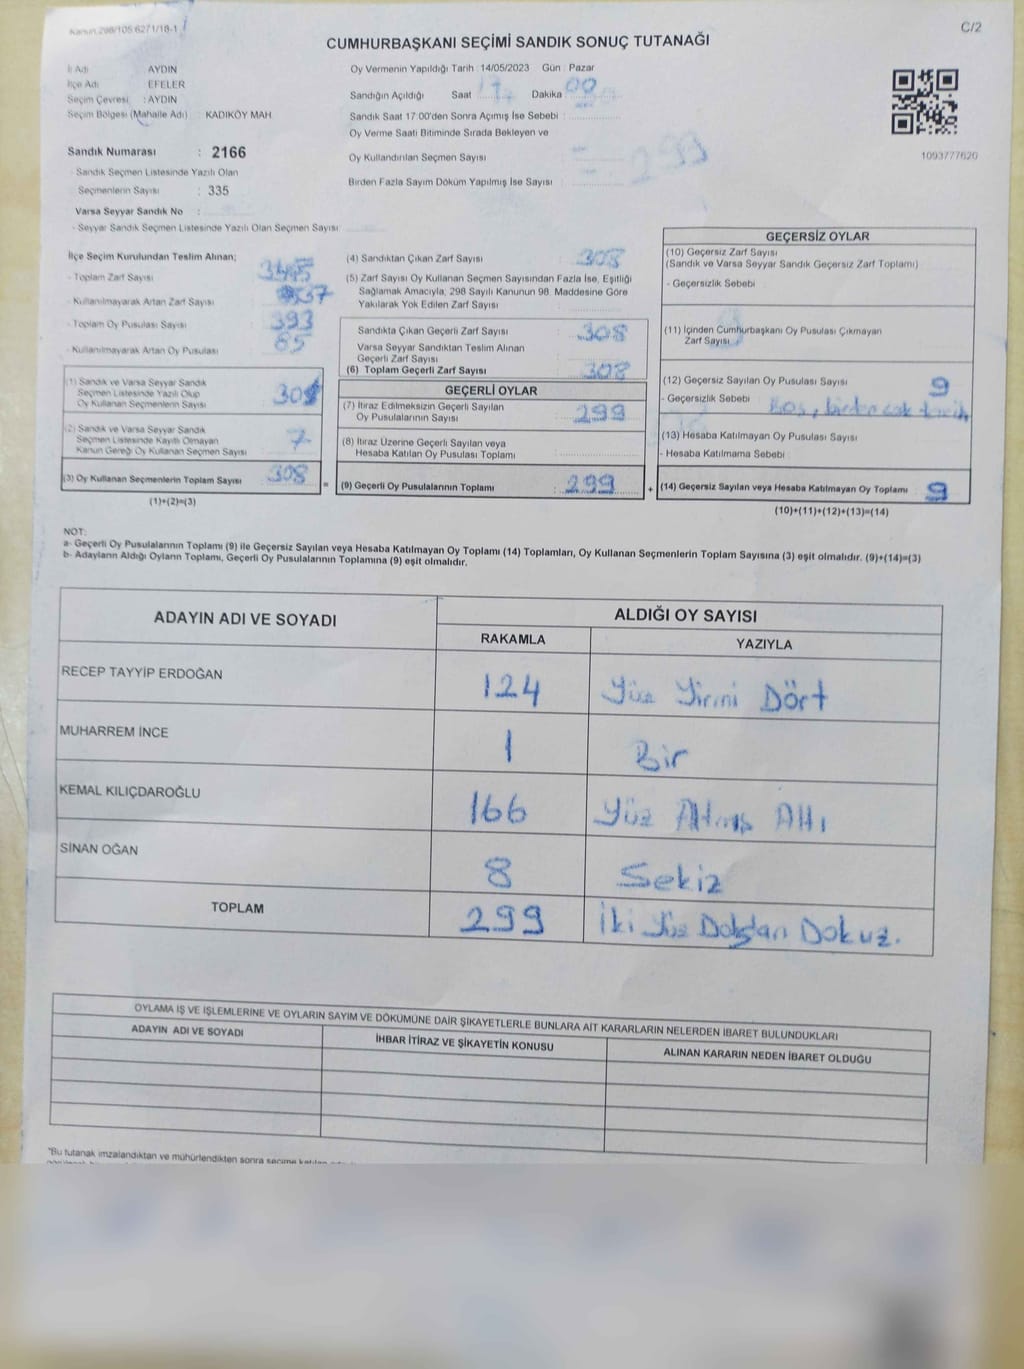 Kanun 298/105 6271/18-1
C/2
CUMHURBAŞKANI SEÇİMİ SANDIK SONUÇ TUTANAĞI
İl Adı AYDIN
İlçe Adı EFELER
Seçim Çevresi : AYDIN
Seçim Bölgesi (Mahalle Adı) : KADIKÖY MAH.
Sandık Numarası : 2166
- Sandık Seçmen Listesinde Yazılı Olan
Seçmenlerin Sayısı : 335
Varsa Seyyar Sandık No :
- Seyyar Sandık Seçmen Listesinde Yazılı Olan Seçmen Sayısı
Oy Vermenin Yapıldığı Tarih : 14/05/2023 Gün : Pazar
Sandığın Açıldığı Saat 17 Dakika 00
Sandık Saat 17:00'den Sonra Açımış İse Sebebi :
Oy Verme Saati Bitiminde Sırada Bekleyen ve
Oy Kullandırılan Seçmen Sayısı :
299
Birden Fazla Sayım Döküm Yapılmış İse Sayısı :
1093777620
İlçe Seçim Kurulundan Teslim Alınan;
- Toplam Zarf Sayısı
- Kullanılmayarak Artan Zarf Sayısı 37
- Toplam Oy Pusulası Sayısı 393
- Kullanılmayarak Artan Oy Pusulası 85
(1) Sandık ve Varsa Seyyar Sandık
Seçmen Listesinde Yazılı Olup
Oy Kullanan Seçmenlerin Sayısı 301
(2) Sandık ve Varsa Seyyar Sandık
Seçmen Listesinde Kayıtlı Olmayan
Kanun Gereği Oy Kullanan Seçmen Sayısı 7
(3) Oy Kullanan Seçmenlerin Toplam Sayısı 308
(1)+(2)=(3)
(4) Sandıktan Çıkan Zarf Sayısı : 308
(5) Zarf Sayısı Oy Kullanan Seçmen Sayısından Fazla İse, Eşitliği
Sağlamak Amacıyla, 298 Sayılı Kanunun 98. Maddesine Göre
Yakılarak Yok Edilen Zarf Sayısı :
Sandıkta Çıkan Geçerli Zarf Sayısı : 308
Varsa Seyyar Sandıktan Teslim Alınan
Geçerli Zarf Sayısı
(6) Toplam Geçerli Zarf Sayısı : 308
GEÇERLİ OYLAR
(7) İtiraz Edilmeksizin Geçerli Sayılan
Oy Pusulalarının Sayısı : 299
(8) İtiraz Üzerine Geçerli Sayılan veya
Hesaba Katılan Oy Pusulası Toplamı :
= (9) Geçerli Oy Pusulalarının Toplamı : 299 +
GEÇERSİZ OYLAR
(10) Geçersiz Zarf Sayısı :
(Sandık ve Varsa Seyyar Sandık Geçersiz Zarf Toplamı)
- Geçersizlik Sebebi :
(11) İçinden Cumhurbaşkanı Oy Pusulası Çıkmayan
Zarf Sayısı
(12) Geçersiz Sayılan Oy Pusulası Sayısı : 9
- Geçersizlik Sebebi : Boş, birden çok tercih
(13) Hesaba Katılmayan Oy Pusulası Sayısı :
- Hesaba Katılmama Sebebi :
(14) Geçersiz Sayılan veya Hesaba Katılmayan Oy Toplamı : 9
(10)+(11)+(12)+(13)=(14)
NOT:
a- Geçerli Oy Pusulalarının Toplamı (9) ile Geçersiz Sayılan veya Hesaba Katılmayan Oy Toplamı (14) Toplamları, Oy Kullanan Seçmenlerin Toplam Sayısına (3) eşit olmalıdır. (9)+(14)=(3)
b- Adayların Aldığı Oyların Toplamı, Geçerli Oy Pusulalarının Toplamına (9) eşit olmalıdır.
ADAYIN ADI VE SOYADI ALDIĞI OY SAYISI
RAKAMLA YAZIYLA
RECEP TAYYİP ERDOĞAN 124 Yüz Yirmi Dört
MUHARREM İNCE 1 Bir
KEMAL KILIÇDAROĞLU 166 Yüz Altmış Altı
SİNAN OĞAN 8 Sekiz
TOPLAM 299 İki Yüz Doksan Dokuz.
OYLAMA İŞ VE İŞLEMLERİNE VE OYLARIN SAYIM VE DÖKÜMÜNE DAİR ŞİKAYETLERLE BUNLARA AİT KARARLARIN NELERDEN İBARET BULUNDUKLARI
ADAYIN ADI VE SOYADI İHBAR İTİRAZ VE ŞİKAYETİN KONUSU ALINAN KARARIN NEDEN İBARET OLDUĞU
*Bu tutanak imzalandıktan ve mühürlendikten sonra seçime katılan